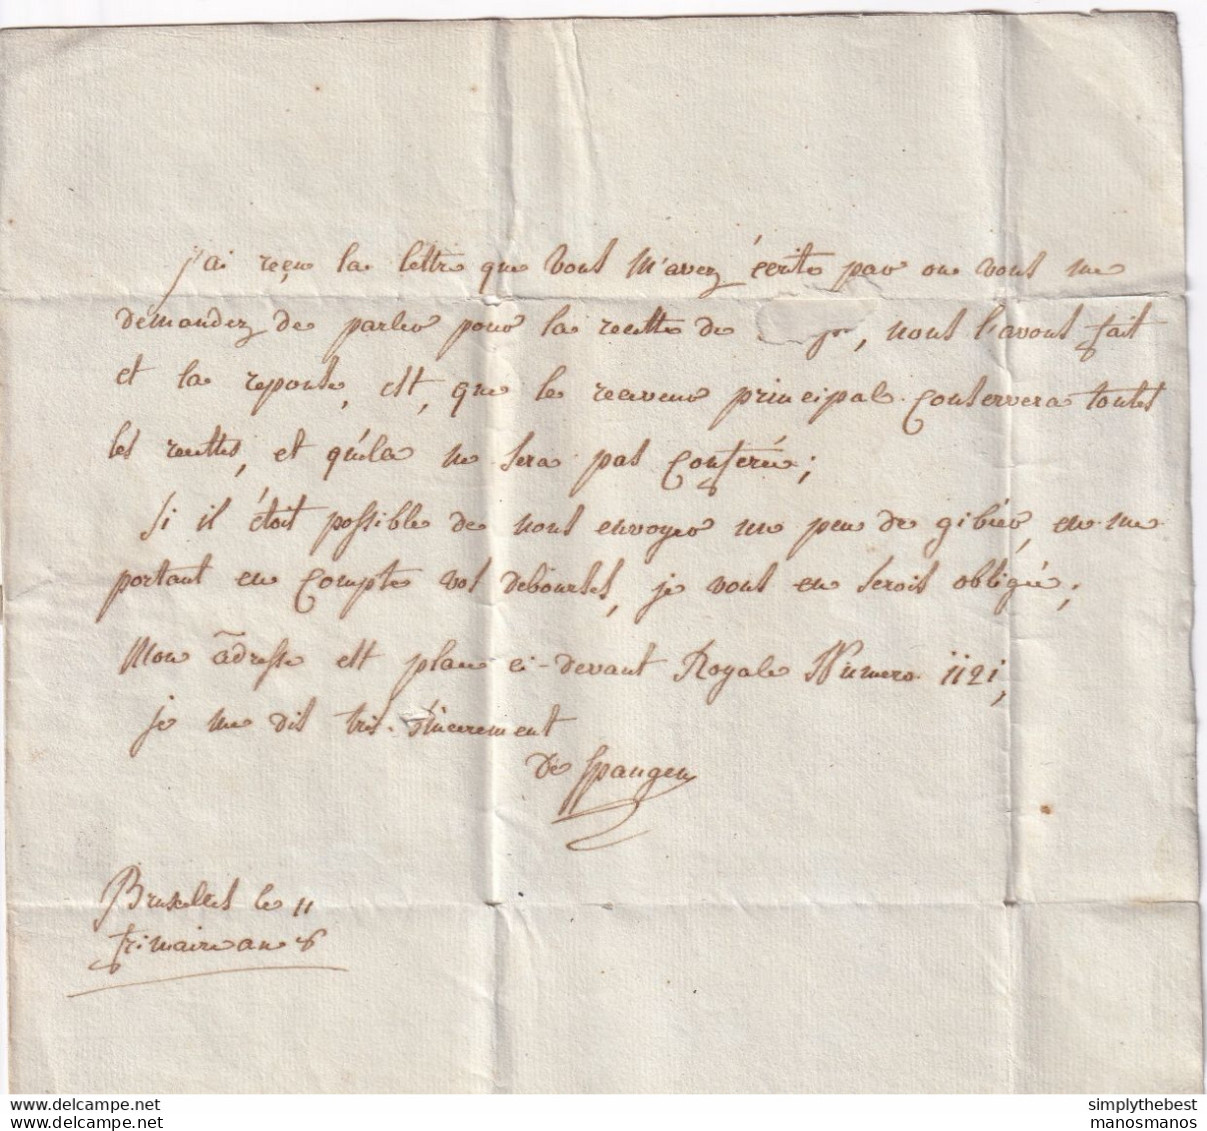 j'ai reçu la lettre que vous m'avez écrite par ou vous me
demandez de parler pour la recette de , nous l'avons fait
et la reponse, est, que le receveur principal conservera toutes
les recettes, et qu'ela ne sera pas conferée;
si il étoit possible de nous envoyer un peu de gibier, en me
portant en compte vos debourses, je vous en serois obligée;
Mon adresse est place ci-devant Royale Numero 1121,
je me dis tres-sincerement
de Spangen
Bruxelles le 11
frimaire an 8
www.delcampe.net
www.delcampe.net
simplythebest
manosmanos